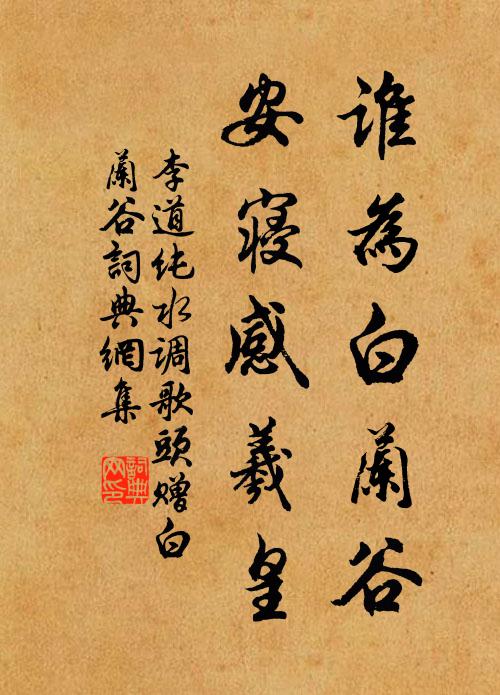 谁為白蘭谷
安寢感羲皇
李道纯水调歌頭赠白
蘭谷詞典網集
詞典
网印